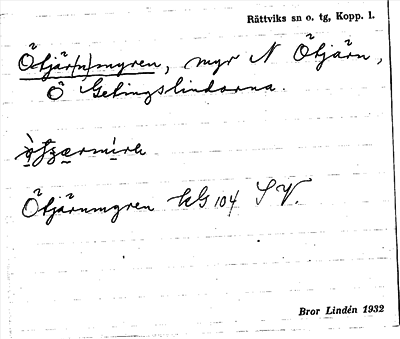 Rättviks sn o. tg, Kopp. l.
Ötjär(n)myren, myr N Ötjärn,
Ö Getingslindorna.
Ötjärnmyren KG 104 SV.
Bror Lindén 1932